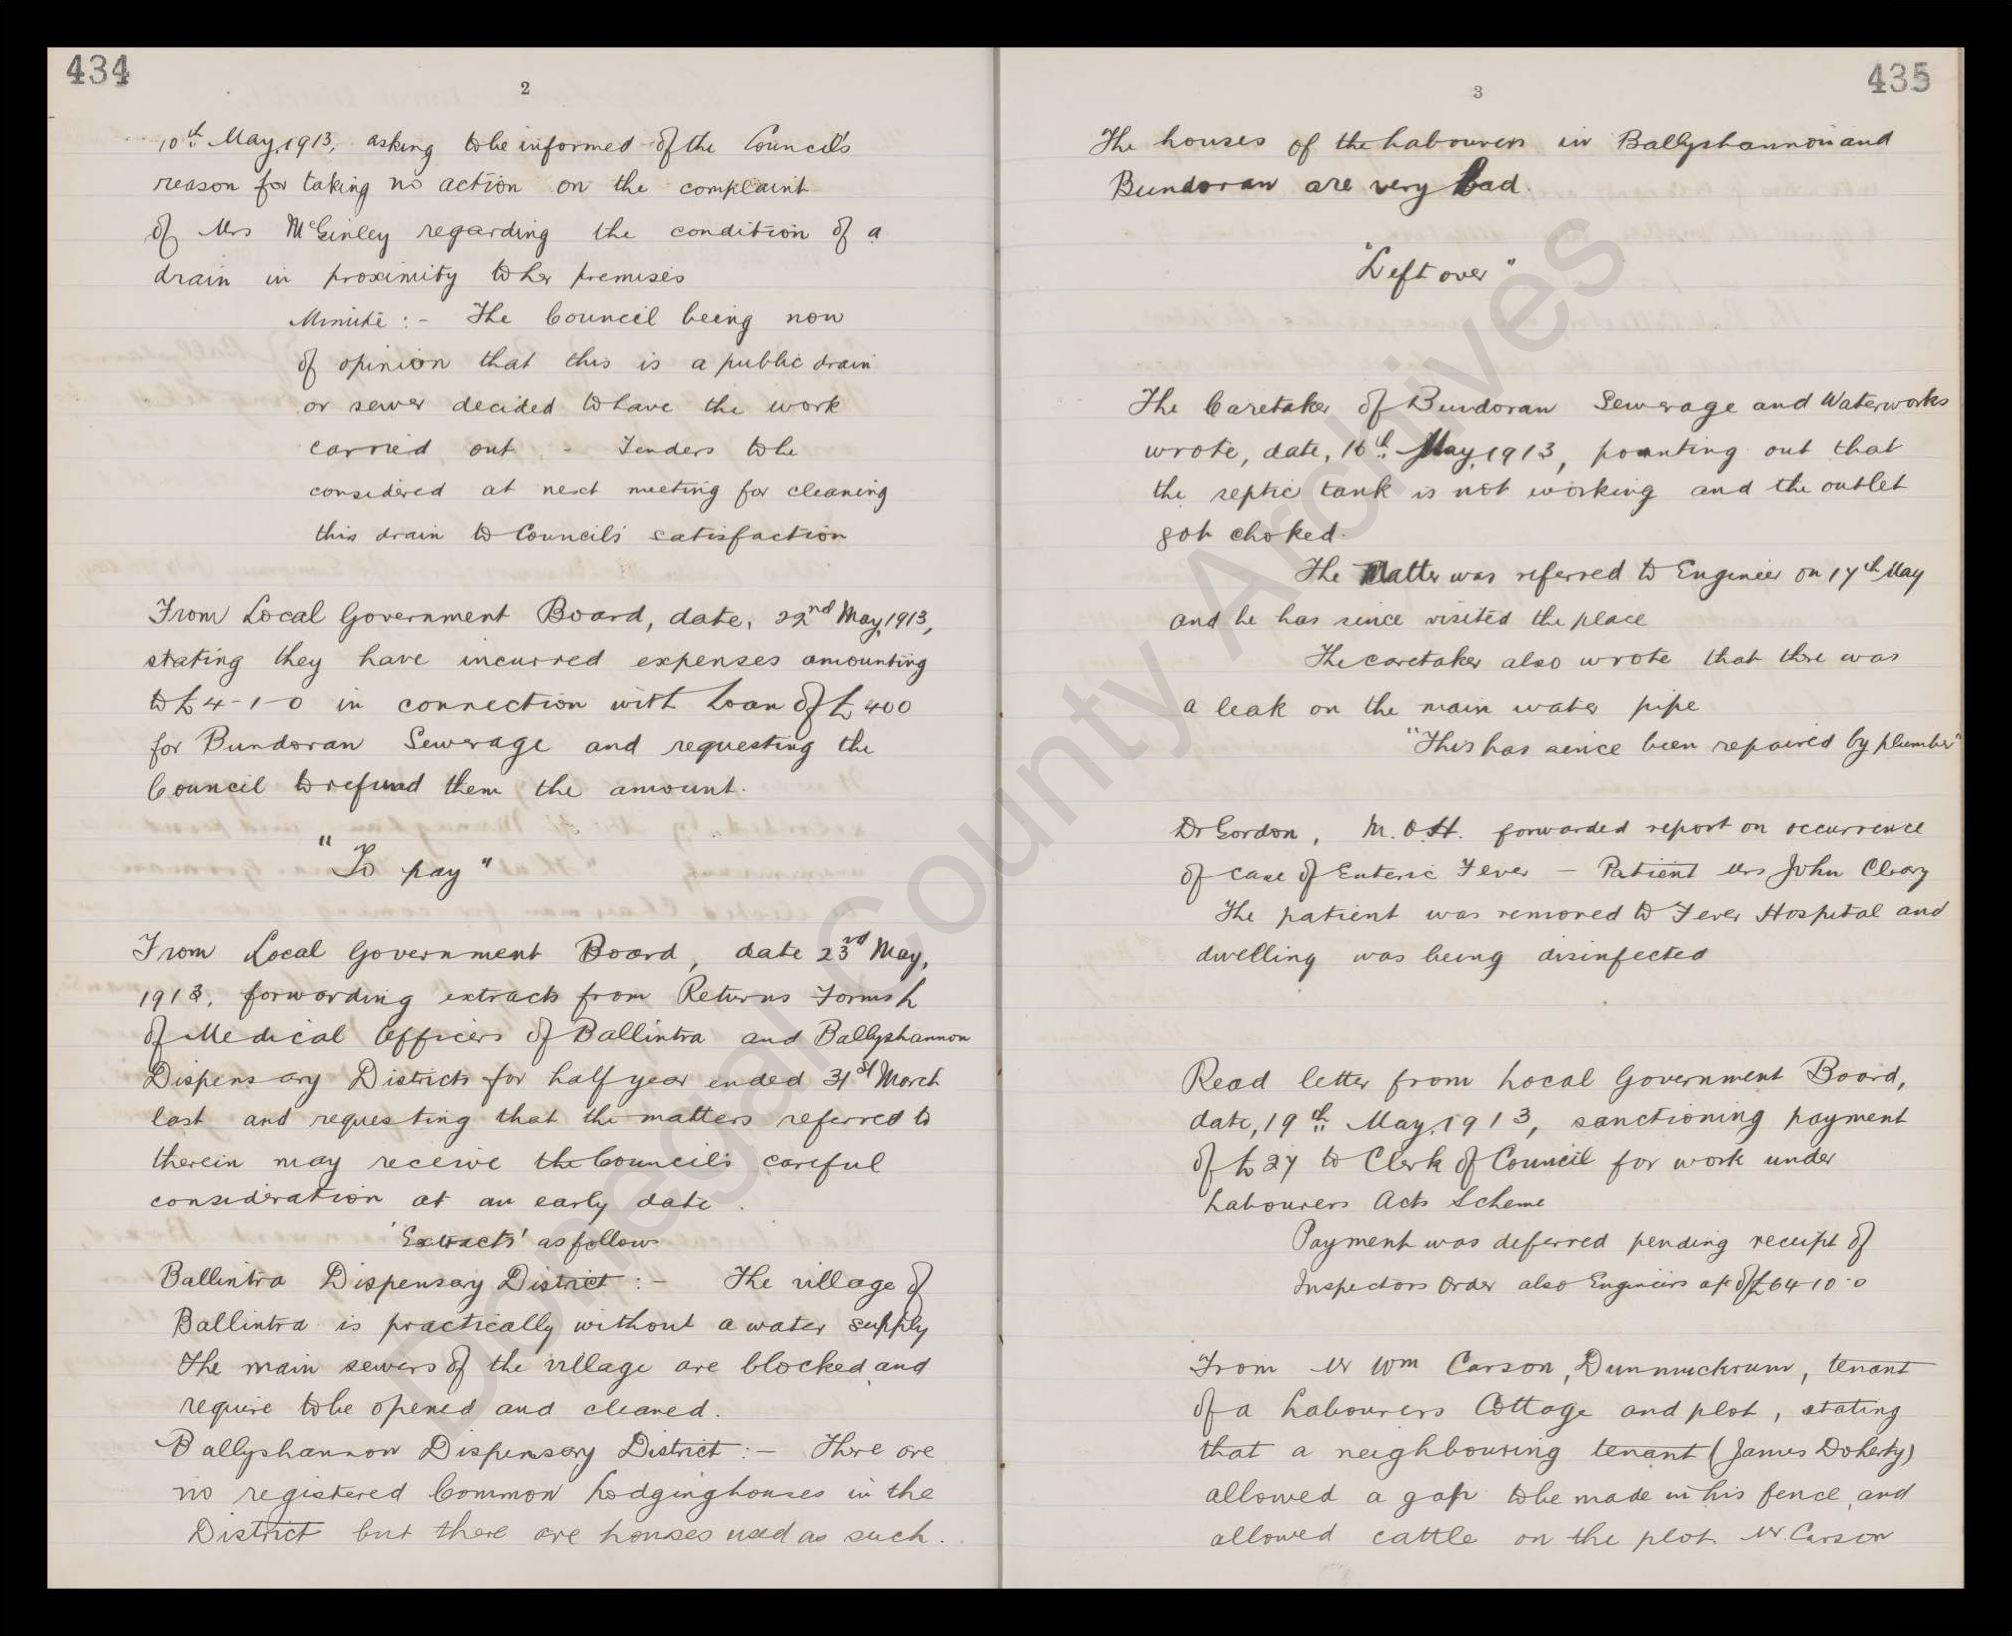 434
2
10th May, 1913, asking to be informed of the Council's
reason for taking no action on the complaint
of Mrs McGinley regarding the condition of a
drain in proximity to her premises
Minute :- The Council being now
of opinion that this is a public drain
or sewer decided to have the work
carried out - Tenders to be
considered at next meeting for cleaning
this drain to Councils' satisfaction
From Local Government Board, date, 22nd May, 1913,
stating they have incurred expenses amounting
to £4-1-0 in connection with Loan of £400
for Bundoran Sewerage and requesting the
Council to refund them the amount.
"To pay"
From Local Government Board, date 23rd May,
1913, forwarding extracts from Returns Forms L
of Medical Officers of Ballintra and Ballyshannon
Dispensary Districts for half year ended 31st March
last and requesting that the matters referred to
therein may receive the Council's careful
consideration at an early date.
'Extracts' as follows
Ballintra Dispensary District :- The village of
Ballintra is practically without a water supply
The main sewers of the village are blocked and
require to be opened and cleaned.
Ballyshannon Dispensary District :- There are
no registered Common Lodginghouses in the
District but there are houses used as such.
435
3
The houses of the Labourers in Ballyshannon and
Bundoran are very bad.
"Left over"
The Caretaker of Bundoran Sewerage and Waterworks
wrote, date, 16th May, 1913, pointing out that
the septic tank is not working and the outlet
got choked.
The Matter was referred to Engineer on 17th May
and he has since visited the place
The caretaker also wrote that there was
a leak on the main water pipe
"This has since been repaired by plumber"
Dr Gordon, M.O.H. forwarded report on occurrence
of case of Enteric Fever - Patient Mrs John Cleary
The patient was removed to Fever Hospital and
dwelling was being disinfected
Read letter from Local Government Board,
date, 19th May, 1913, sanctioning payment
of £27 to Clerk of Council for work under
Labourers Acts Scheme
Payment was deferred pending receipt of
Inspectors Order also Engineers a/c of £64-10-0
From Mr Wm Carson, Dunmuckrum, tenant
of a Labourers Cottage and plot, stating
that a neighbouring tenant (James Doherty)
allowed a gap to be made in his fence, and
allowed cattle on the plot. Mr. Carson
Donegal County Archives